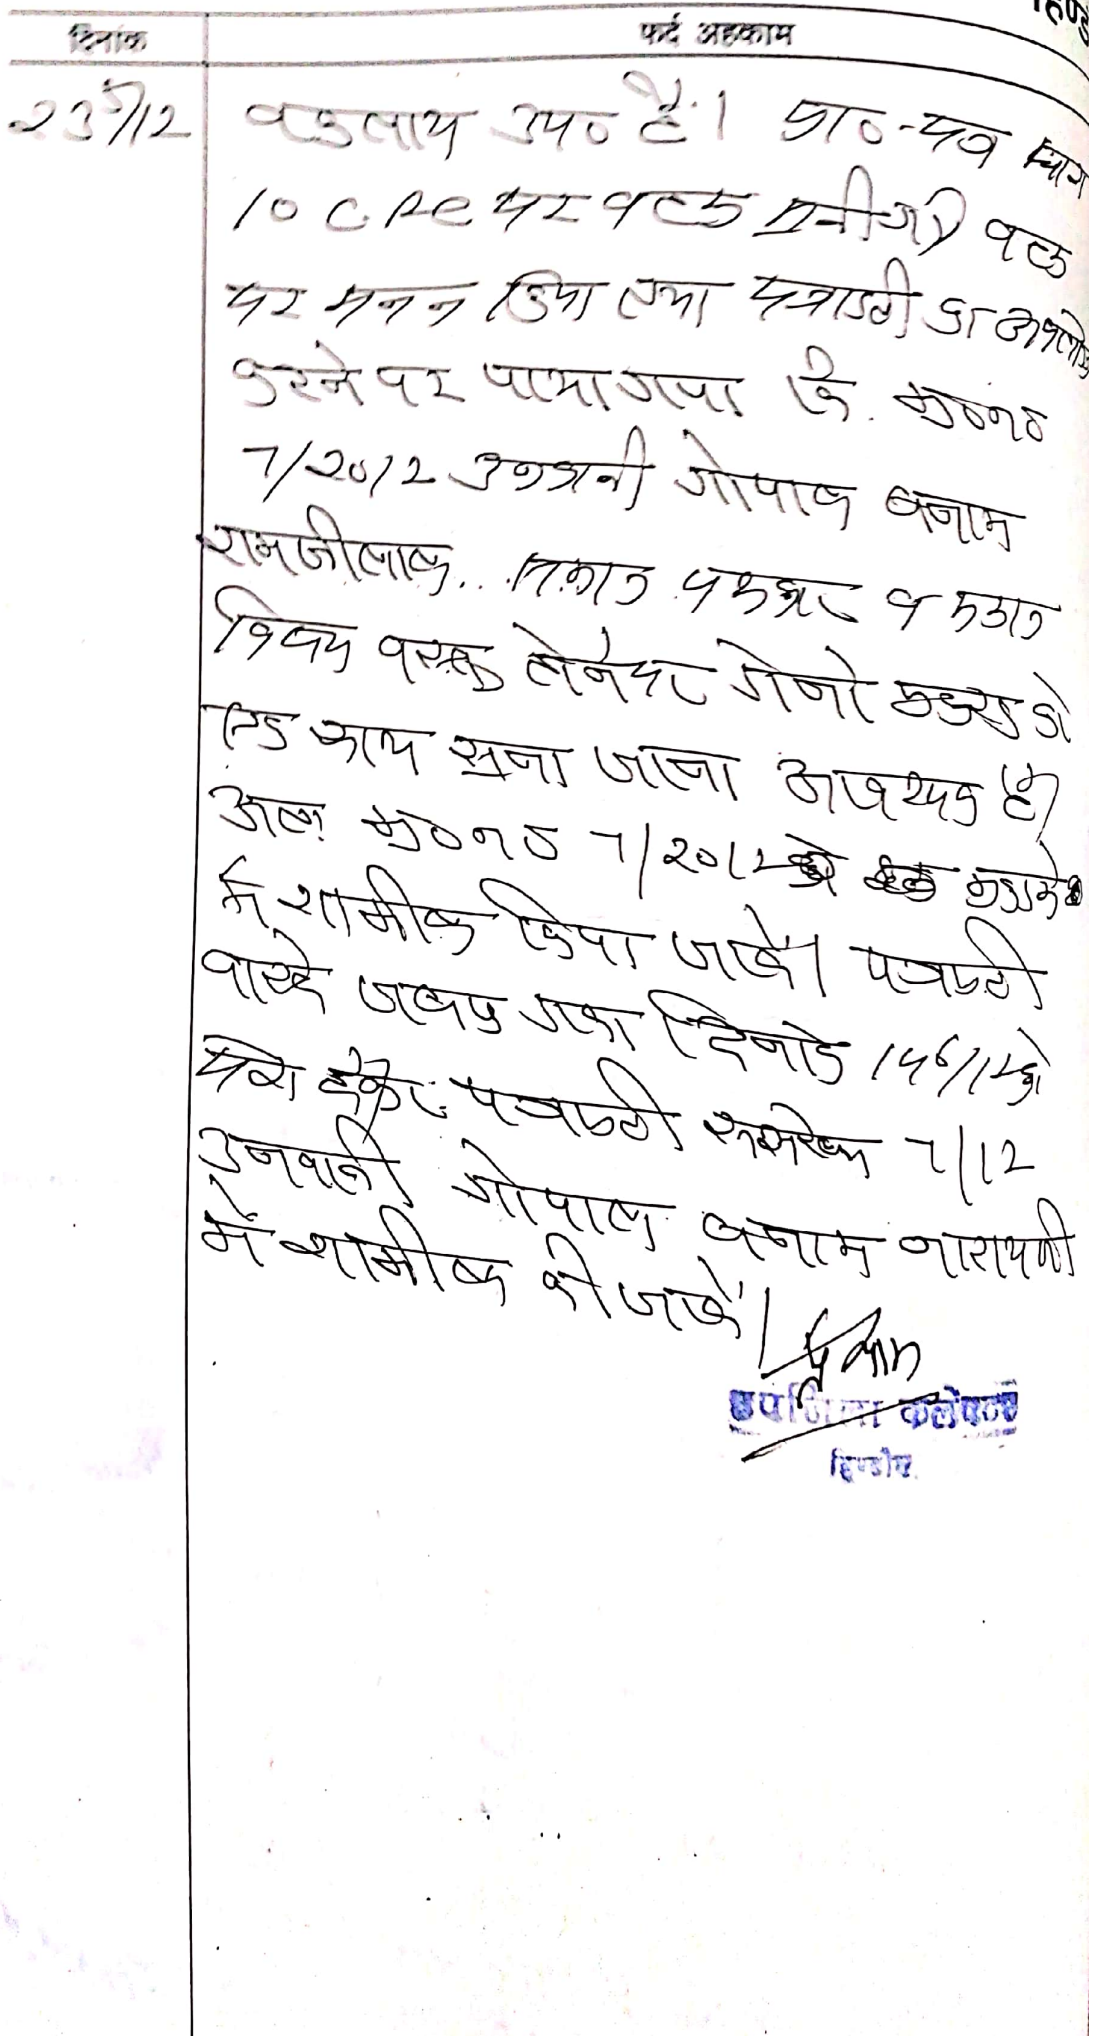 दिनांक फर्द अहकाम
23/5/12 वकुलाय उप० है। प्रा०-पत्र धारा
10 CPC पर बहस सुनी गयी बहस
पर मनन किया तथा पत्रावली का अवलोकन
करने पर पाया गया कि मु०न०
7/2012 उनवानी गोपाल बनाम
रामजीलाल.. समान पक्षकार व समान
विषय वस्तु होने पर दोनो को
एक साथ सुना जाना आवश्यक है।
अतः मु०न० 7/2012 को
में शामील किया जावे। पत्रावली
वास्ते जबाब दिनांक 14/6/12 को
पेश होकर पत्रावली 7/12
उनवानी गोपाल बनाम नारायणी
में शामील की जावे।
उपजिला कलेक्टर
हिण्डौन